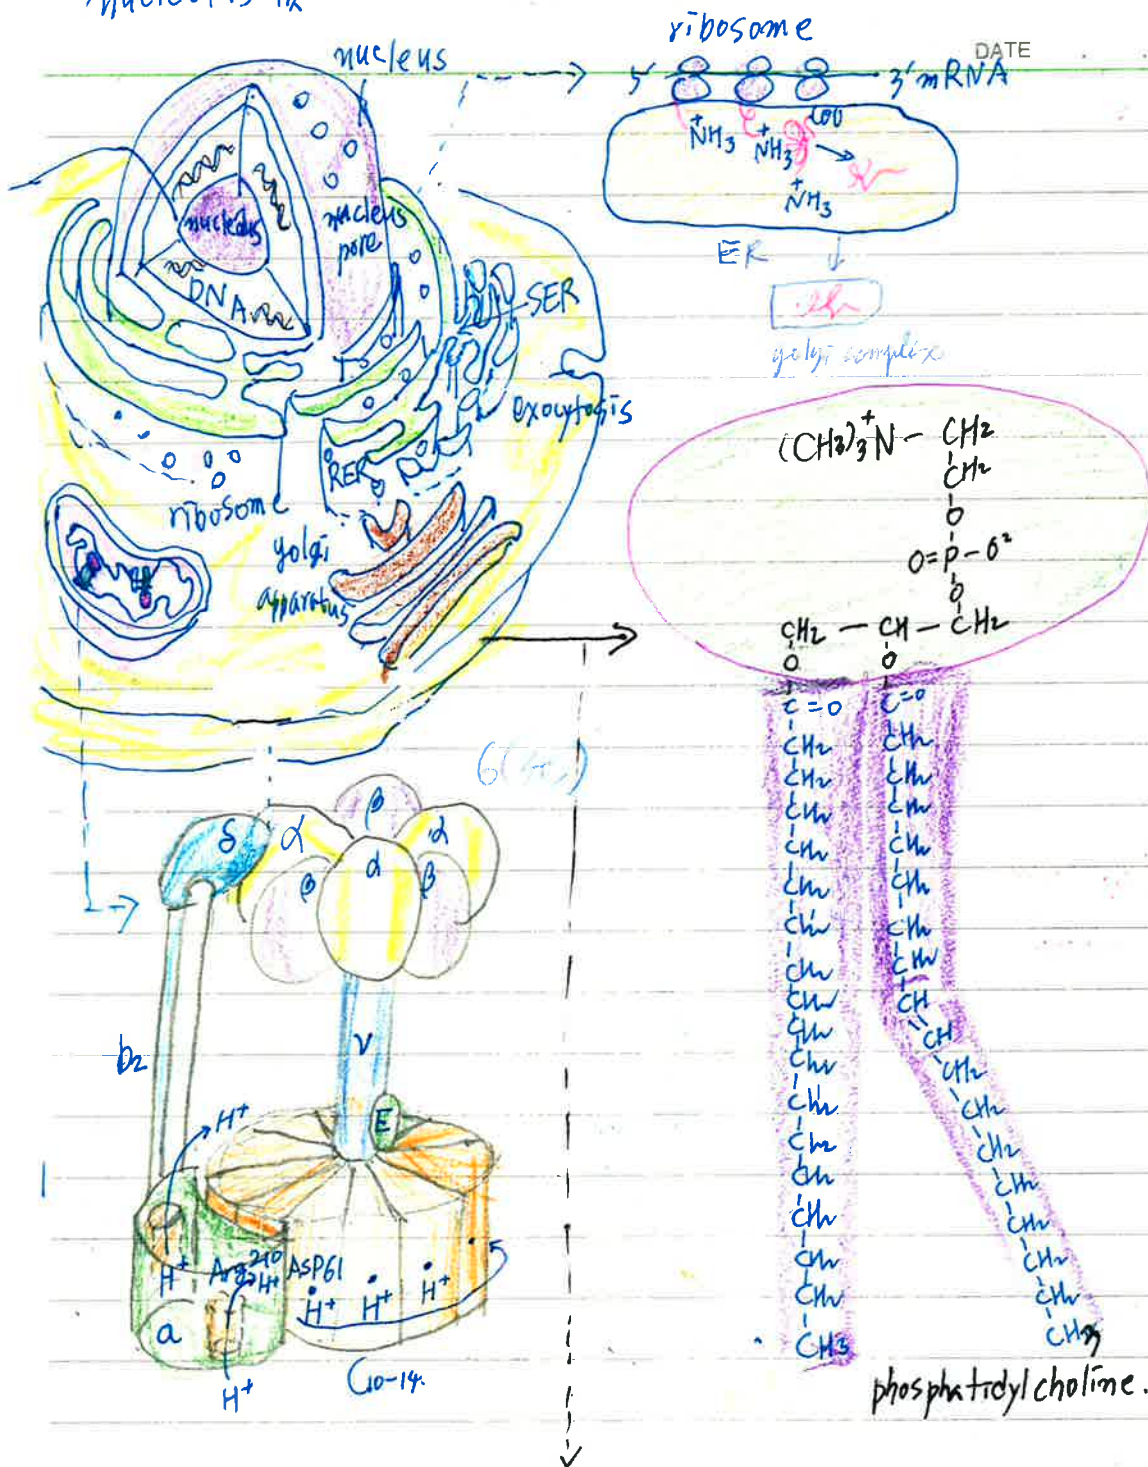 ribosome
DATE
nucleus
5' 3' mRNA
COO
+NH3 +NH3
+NH3
nucleolus
nucleus
pore
DNA
SER
ER
golgi complex
exocytosis
RER
ribosome
golgi
apparatus
(CH3)3N+ - CH2
CH2
O
O=P-O
O
CH2 - CH - CH2
O O
C=O C=O
CH2 CH2
CH2 CH2
CH2 CH2
CH2 CH2
CH2 CH2
CH2 CH2
CH2 CH2
CH2 CH
CH2 CH
CH2 CH2
CH2 CH2
CH2 CH2
CH2 CH2
CH2 CH2
CH2 CH2
CH2 CH2
CH3 CH3
phosphatidyl choline.
β
δ α α
β α β
b2
γ
H+
E
H+ Arg210 H+ ASP61
H+ H+ H+
a
H+
C10-14.